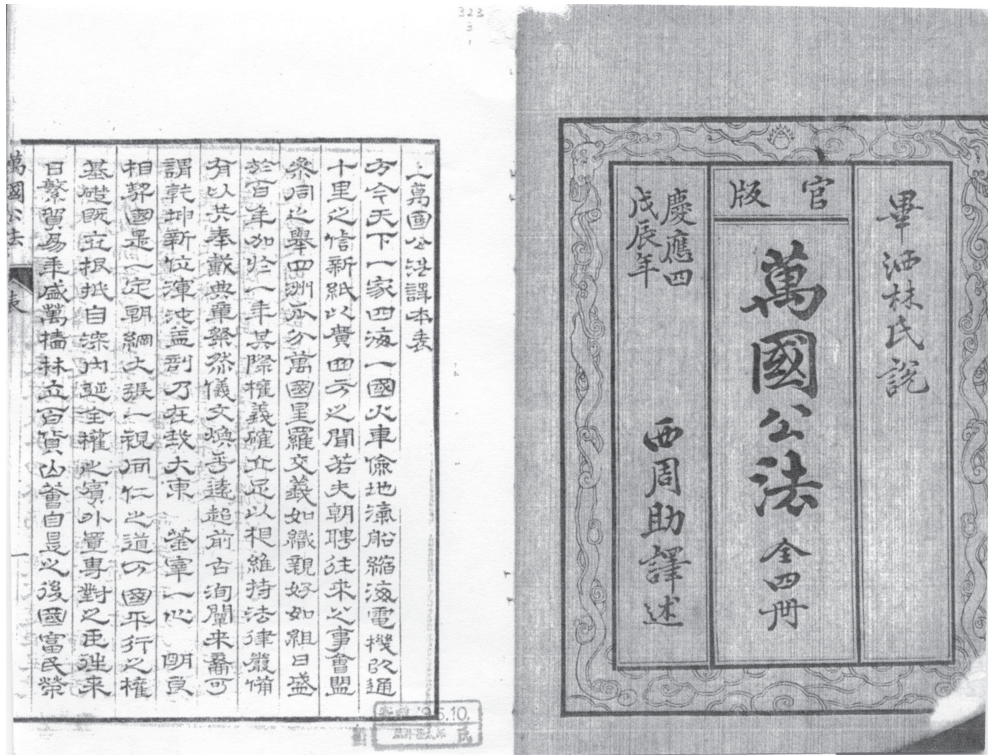 323
3
1
畢洒林氏說
官版
萬國公法 全四冊
慶應四
戊辰年
西周助譯述
上萬國公法譯本表
方今天下一家四海一國火車儉地瀛船縮海電機以通
十里之信新紙以貴四方之聞若夫朝聘往來之事會盟
參同之舉四洲瓜分萬國星羅交義如織親好如組日盛
於百年加於一年其際權義確立足以相維持法律嚴備
有以共奉戴典章粲然儀文煥乎遠超前古洵闢來可
謂乾坤新位渾沌盖剖乃在玆大東 宰一心 明良
相契國是一定朝綱大張一視同仁之道以國平行之權
基礎既立根抵自深内延全權之賓外置專對之臣往來
日繁貿易年盛萬檣林立百貨山蓄自是之後國富民榮
萬國公法 表 一
6.10.